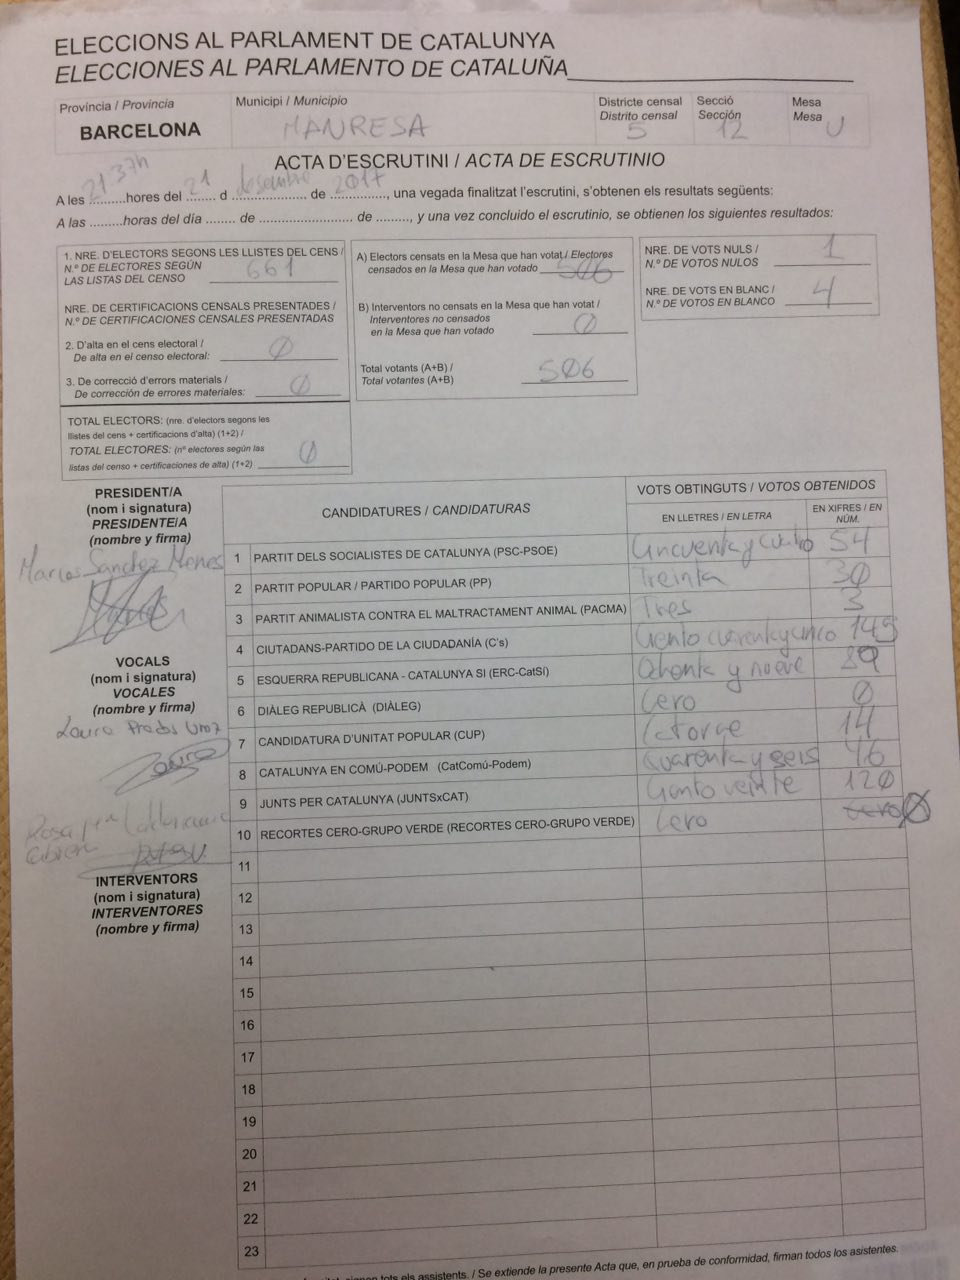 ELECCIONS AL PARLAMENT DE CATALUNYA
ELECCIONES AL PARLAMENTO DE CATALUÑA
Província / Provincia
BARCELONA
Municipi / Municipio
MANRESA
Districte censal
Distrito censal
5
Secció
Sección
12
Mesa
Mesa
U
ACTA D'ESCRUTINI / ACTA DE ESCRUTINIO
A les 21 37h hores del 21 d desembre de 2017, una vegada finalitzat l'escrutini, s'obtenen els resultats següents:
A las .........horas del día ........ de ........................ de ........., y una vez concluido el escrutinio, se obtienen los siguientes resultados:
1. NRE. D'ELECTORS SEGONS LES LLISTES DEL CENS /
N.º DE ELECTORES SEGÚN
LAS LISTAS DEL CENSO 661
NRE. DE CERTIFICACIONS CENSALS PRESENTADES /
N.º DE CERTIFICACIONES CENSALES PRESENTADAS
2. D'alta en el cens electoral /
De alta en el censo electoral: 0
3. De correcció d'errors materials /
De corrección de errores materiales: 0
TOTAL ELECTORS: (nre. d'electors segons les
llistes del cens + certificacions d'alta) (1+2) /
TOTAL ELECTORES: (nº electores según las
listas del censo + certificaciones de alta) (1+2) 0
A) Electors censats en la Mesa que han votat / Electores
censados en la Mesa que han votado 506
B) Interventors no censats en la Mesa que han votat /
Interventores no censados
en la Mesa que han votado 0
Total votants (A+B) /
Total votantes (A+B) 506
NRE. DE VOTS NULS /
N.º DE VOTOS NULOS 1
NRE. DE VOTS EN BLANC /
N.º DE VOTOS EN BLANCO 4
PRESIDENT/A
(nom i signatura)
PRESIDENTE/A
(nombre y firma)
Marcos Sanchez Menes
VOCALS
(nom i signatura)
VOCALES
(nombre y firma)
Laura Prados
Laura
Rosa
INTERVENTORS
(nom i signatura)
INTERVENTORES
(nombre y firma)
CANDIDATURES / CANDIDATURAS
VOTS OBTINGUTS / VOTOS OBTENIDOS
EN LLETRES / EN LETRA
EN XIFRES / EN NÚM.
1 PARTIT DELS SOCIALISTES DE CATALUNYA (PSC-PSOE) Cincuenta y cuatro 54
2 PARTIT POPULAR / PARTIDO POPULAR (PP) Treinta 30
3 PARTIT ANIMALISTA CONTRA EL MALTRACTAMENT ANIMAL (PACMA) Tres 3
4 CIUTADANS-PARTIDO DE LA CIUDADANÍA (C's) Ciento cuarenta y cinco 145
5 ESQUERRA REPUBLICANA - CATALUNYA SI (ERC-CatSí) Ochenta y nueve 89
6 DIÀLEG REPUBLICÀ (DIÀLEG) Cero 0
7 CANDIDATURA D'UNITAT POPULAR (CUP) Catorce 14
8 CATALUNYA EN COMÚ-PODEM (CatComú-Podem) Quarenta y seis 46
9 JUNTS PER CATALUNYA (JUNTSxCAT) Ciento veinte 120
10 RECORTES CERO-GRUPO VERDE (RECORTES CERO-GRUPO VERDE) Cero cero 0
11
12
13
14
15
16
17
18
19
20
21
22
23
signen tots els assistents. / Se extiende la presente Acta que, en prueba de conformidad, firman todos los asistentes.